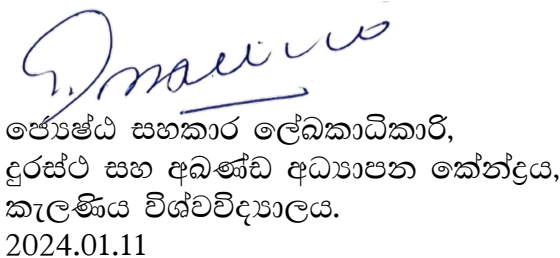 ජ්‍යෙෂ්ඨ සහකාර ලේඛකාධිකාරි,
දුරස්ථ සහ අඛණ්ඩ අධ්‍යාපන කේන්ද්‍රය,
කැලණිය විශ්වවිද්‍යාලය.
2024.01.11